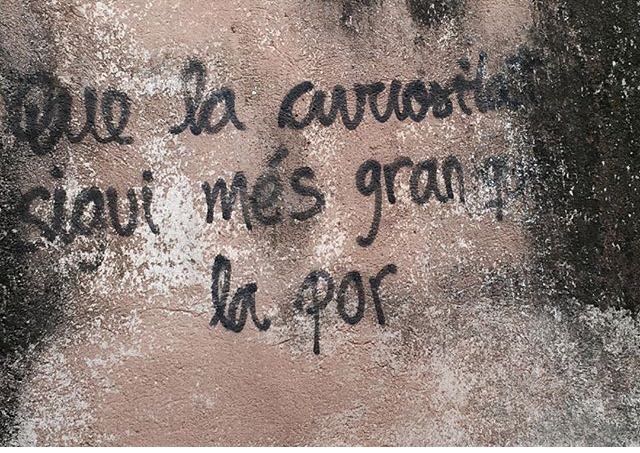 Que la curiositat
sigui més gran que
la por